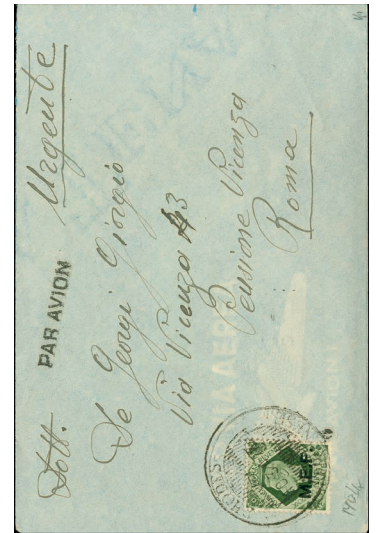 Urgente
PAR AVION
Dott.
De Georgi Giorgio
Via Vicenza 43
Pensione Vicenza
Roma
VIA AEREA
PAR AVION
RHODES
M.E.F.